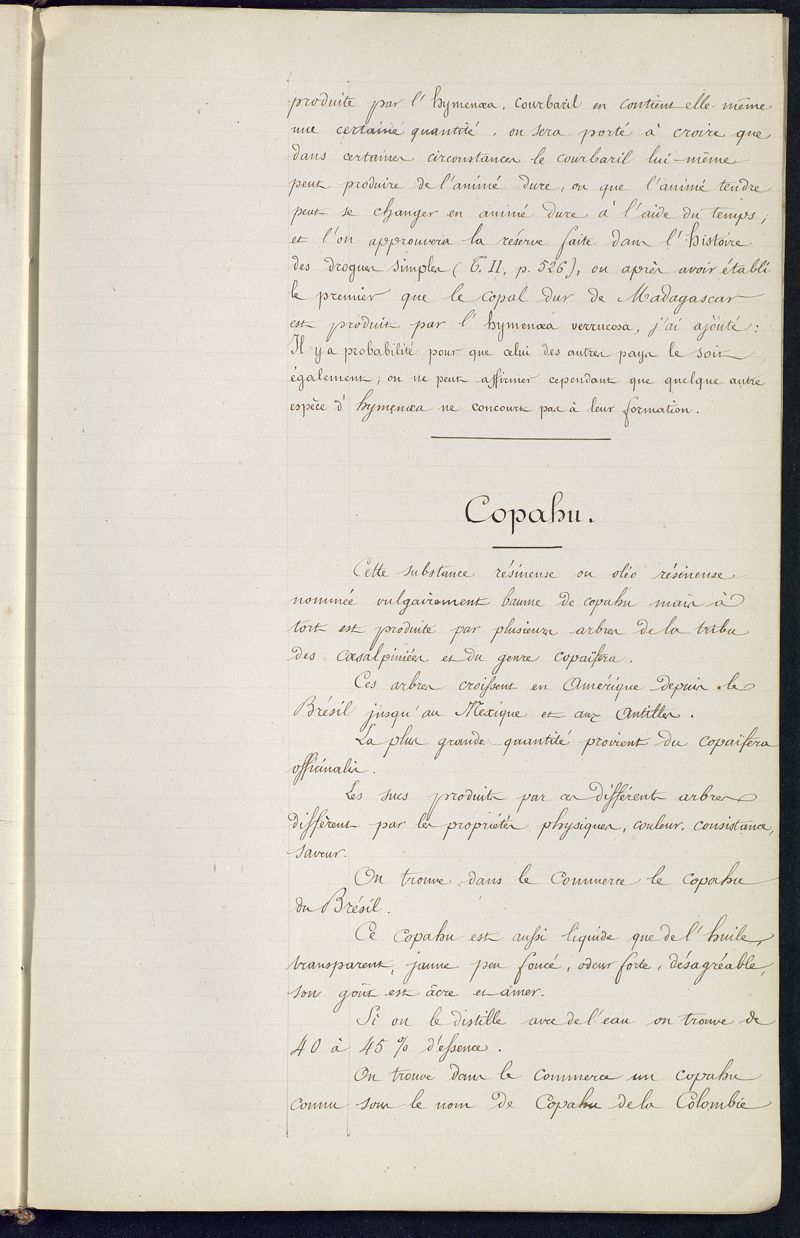 produite par l'hymenæa, courbaril en contient elle-même
une certaine quantité, on sera porté à croire que
dans certaines circonstances le courbaril lui-même
peut produire de l'animé dure, ou que l'animé tendre
peut se changer en animé dure à l'aide du temps,
et l'on approuvera la réserve faite dans l'histoire
des drogues simples (T. II, p. 526), ou après avoir établi
le premier que le copal dur de Madagascar
est produit par l'hymenæa verrucosa, j'ai ajouté :
Il y a probabilité pour que celui des autres pays le soit
également ; on ne peut affirmer cependant que quelque autre
espèce d'hymenæa ne concourt pas à leur formation.
Copahu.
Cette substance résineuse ou oléo résineuse
nommée vulgairement baume de copahu mais à
tort est produite par plusieurs arbres de la tribu
des cæsalpiniées et du genre copaïfera.
Ces arbres croissent en Amérique depuis le
Brésil jusqu'au Mexique et aux Antilles.
La plus grande quantité provient du copaïfera
officinalis.
Les sucs produits par ces différents arbres
diffèrent par les propriétés physiques, couleur, consistance,
saveur.
On trouve dans le Commerce le copahu
du Brésil.
Ce copahu est aussi liquide que de l'huile,
transparent, jaune peu foncé, odeur forte, désagréable,
son goût est âcre et amer.
Si on le distille avec de l'eau on trouve de
40 à 45 % d'essence.
On trouve dans le commerce un copahu
connu sous le nom de Copahu de la Colombie